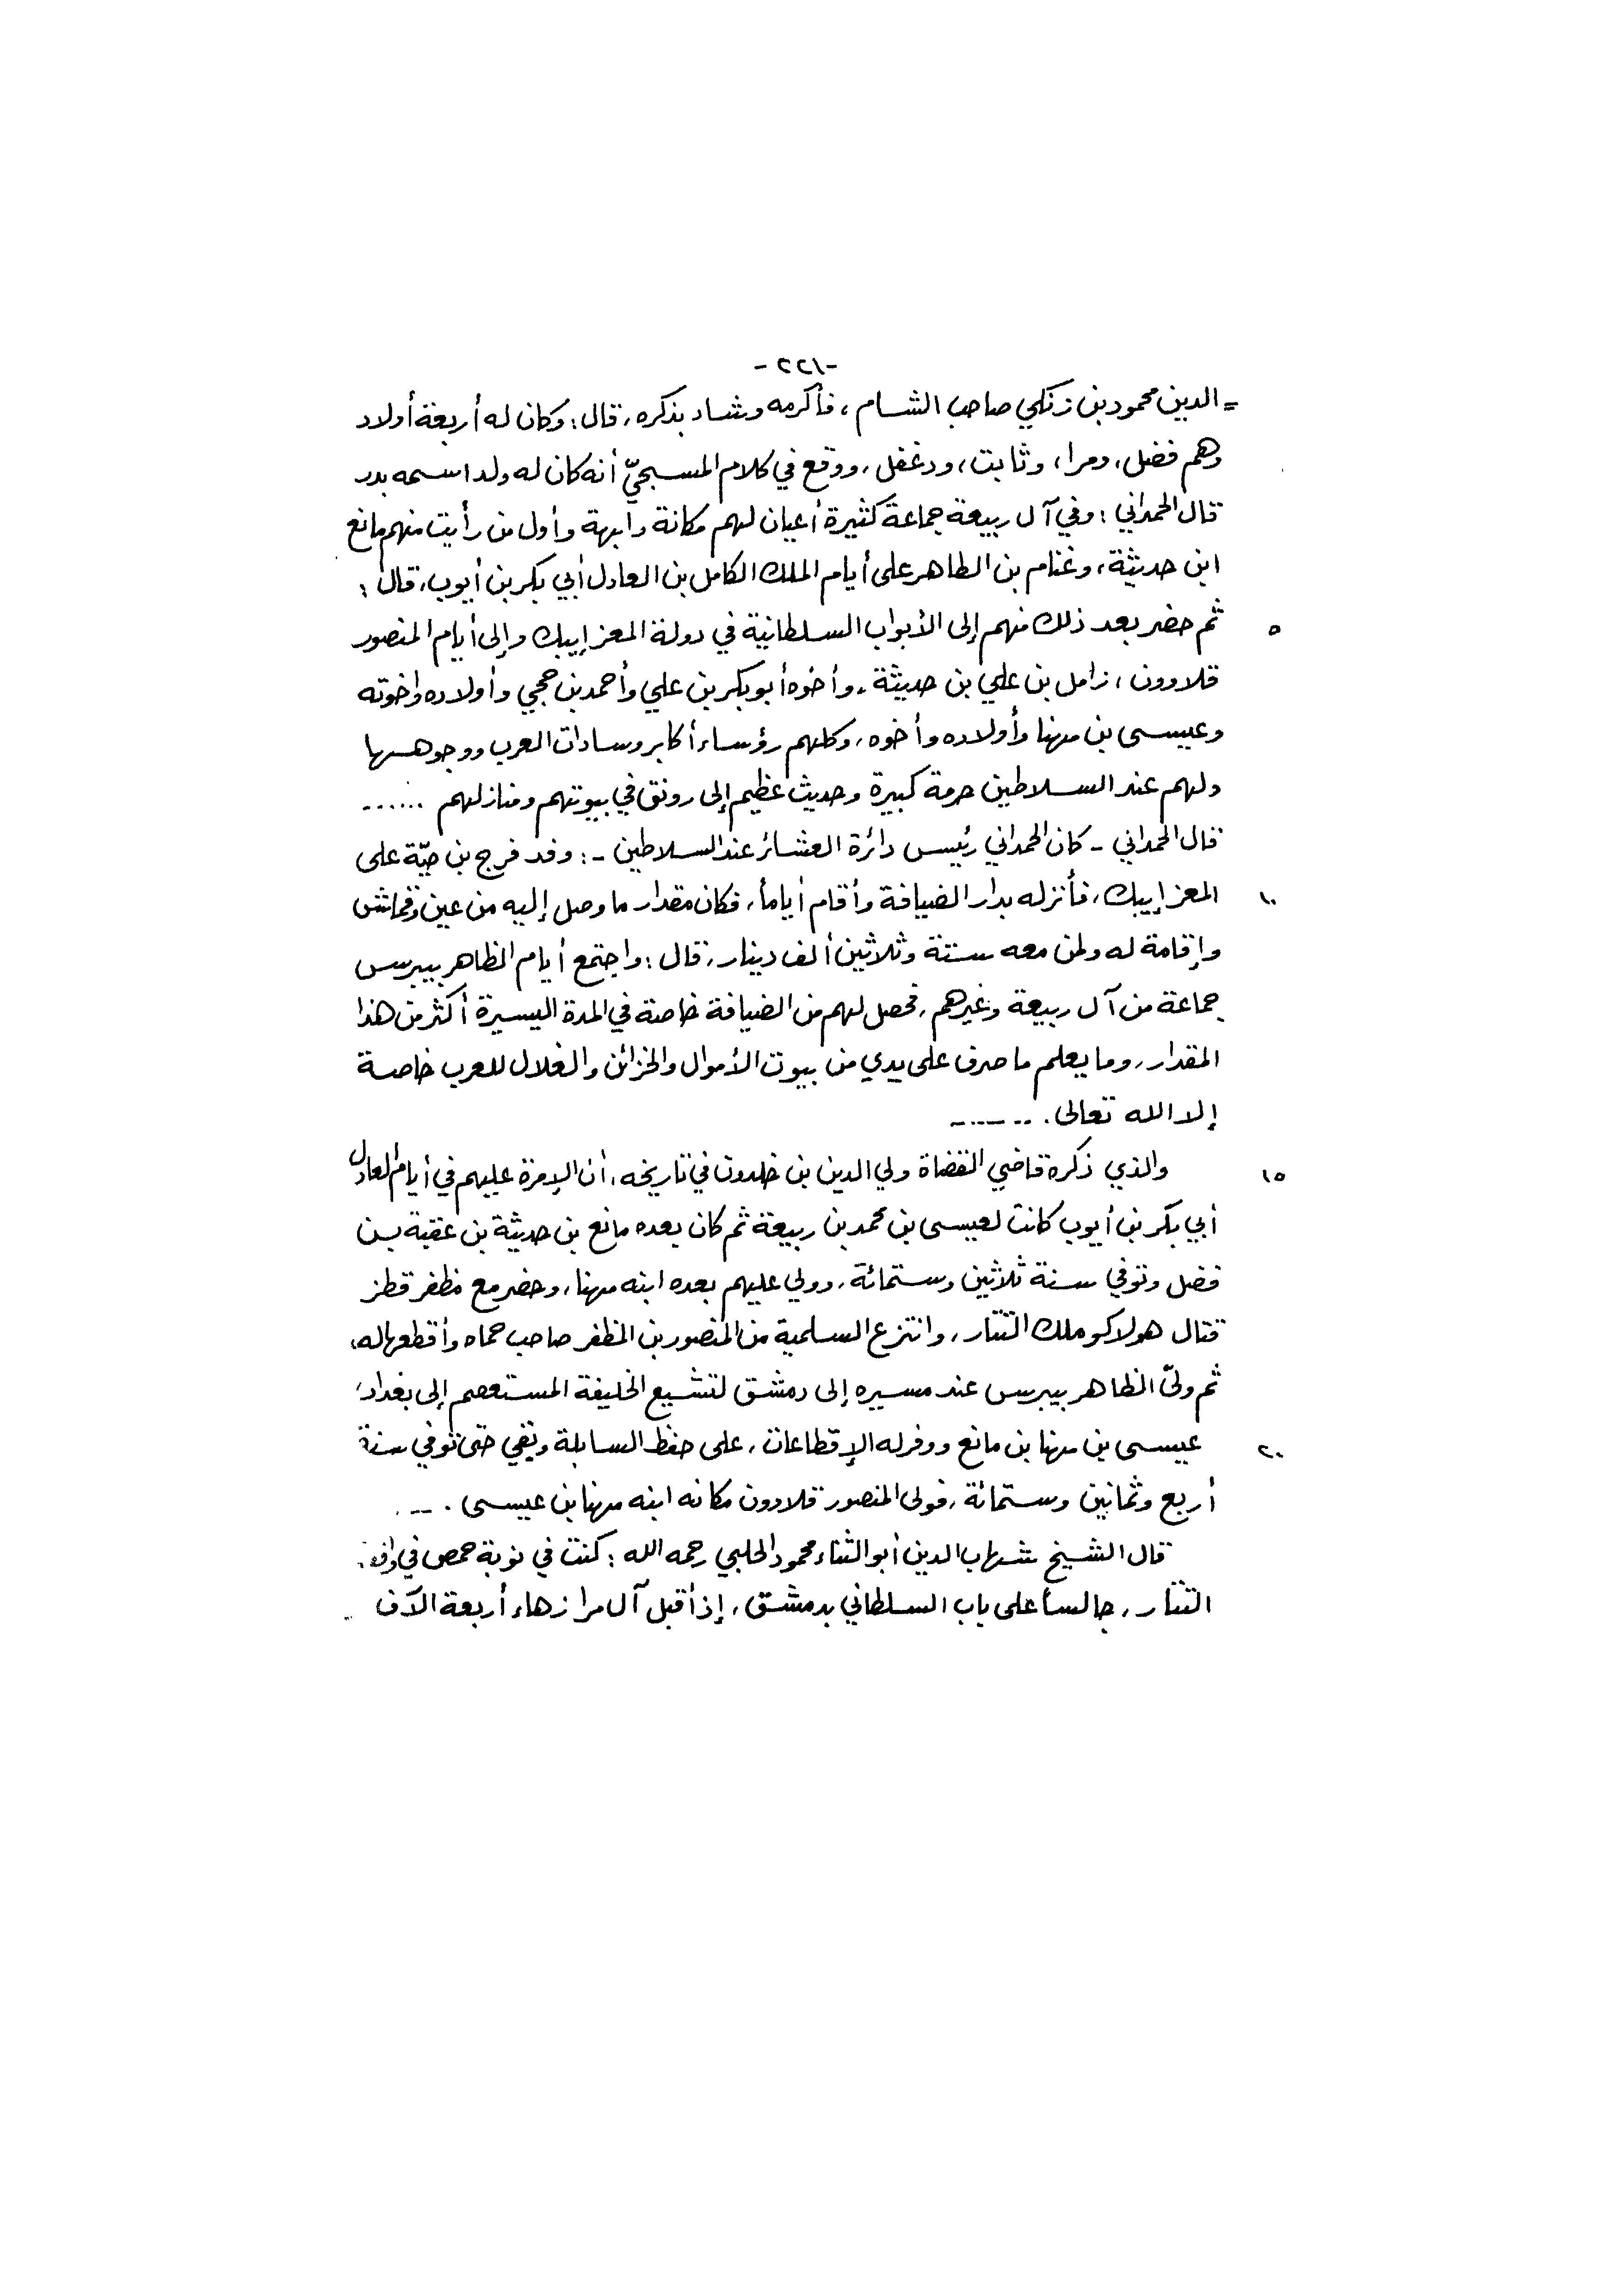 -٢٢١-
= الدين محمود بن زنكي صاحب الشام، فأكرمه وشاد بذكره، قال: وكان له أربعة أولاد
وهم فضل، ومرا، وثابت، ودغفل، ووقع في كلام المسبحيّ أنه كان له ولد اسمه بدر
قال الحمداني: وفي آل ربيعة جماعة كثيرة أعيان لهم مكانة وابهة وأول من رأيت منهم مانع
ابن حديثة، وغنام بن الطاهر على أيام الملك الكامل بن العادل أبي بكر بن أيوب، قال:
ثم حضر بعد ذلك منهم إلى الأبواب السلطانية في دولة المعز إيبك وإلى أيام المنصور
٥
قلاوون، زامل بن علي بن حديثة، وأخوه أبو بكر بن علي وأحمد بن حجي وأولاده وأخوته
وعيسى بن مهنا وأولاده وأخوه، وكلهم رؤساء أكابر وسادات العرب ووجوهها
ولهم عند السلاطين حرمة كبيرة وحديث عظيم إلى رونق في بيوتهم ومنازلهم ......
قال الحمداني - كان الحمداني رئيس دائرة العشائر عند السلاطين -: وفد فرج بن حيّة على
المعز إيبك، فأنزله بدار الضيافة وأقام أياماً، فكان مقدار ما وصل إليه من عين وقماش
١٠
وإقامة له ولمن معه ستة وثلاثين ألف دينار، قال: واجتمع أيام الظاهر بيبرس
جماعة من آل ربيعة وغيرهم، فحصل لهم من الضيافة خاصة في المدة اليسيرة أكثر من هذا
المقدار، وما يعلم ما صرف على يدي من بيوت الأموال والخزائن والغلال للعرب خاصة
إلا الله تعالى. ......
والذي ذكره قاضي القضاة ولي الدين بن خلدون في تاريخه، أن الإمرة عليهم في أيام العادل
١٥
أبي بكر بن أيوب كانت لعيسى بن محمد بن ربيعة ثم كان بعده مانع بن حديثة بن عقبة بن
فضل وتوفي سنة ثلاثين وستمائة، وولي عليهم بعده ابنه مهنا، وحضر مع مظفر قطز
قتال هولاكو ملك التتار، وانتزع السلمية من المنصور بن المظفر صاحب حماه وأقطعها له،
ثم ولىّ الظاهر بيبرس عند مسيره إلى دمشق لتشييع الخليفة المستعصم إلى بغداد،
عيسى بن مهنا بن مانع ووفر له الإقطاعات، على حفظ السابلة وبقي حتى توفي سنة
٢٠
أربع وثمانين وستمائة، فولى المنصور قلاوون مكانه ابنه مهنا بن عيسى. ...
قال الشيخ شهاب الدين أبو الثناء محمود الحلبي رحمه الله: كنت في نوبة حمص في واقعة
التتار، جالساً على باب السلطاني بدمشق، إذ أقبل آل مرا زهاء أربعة الآف =